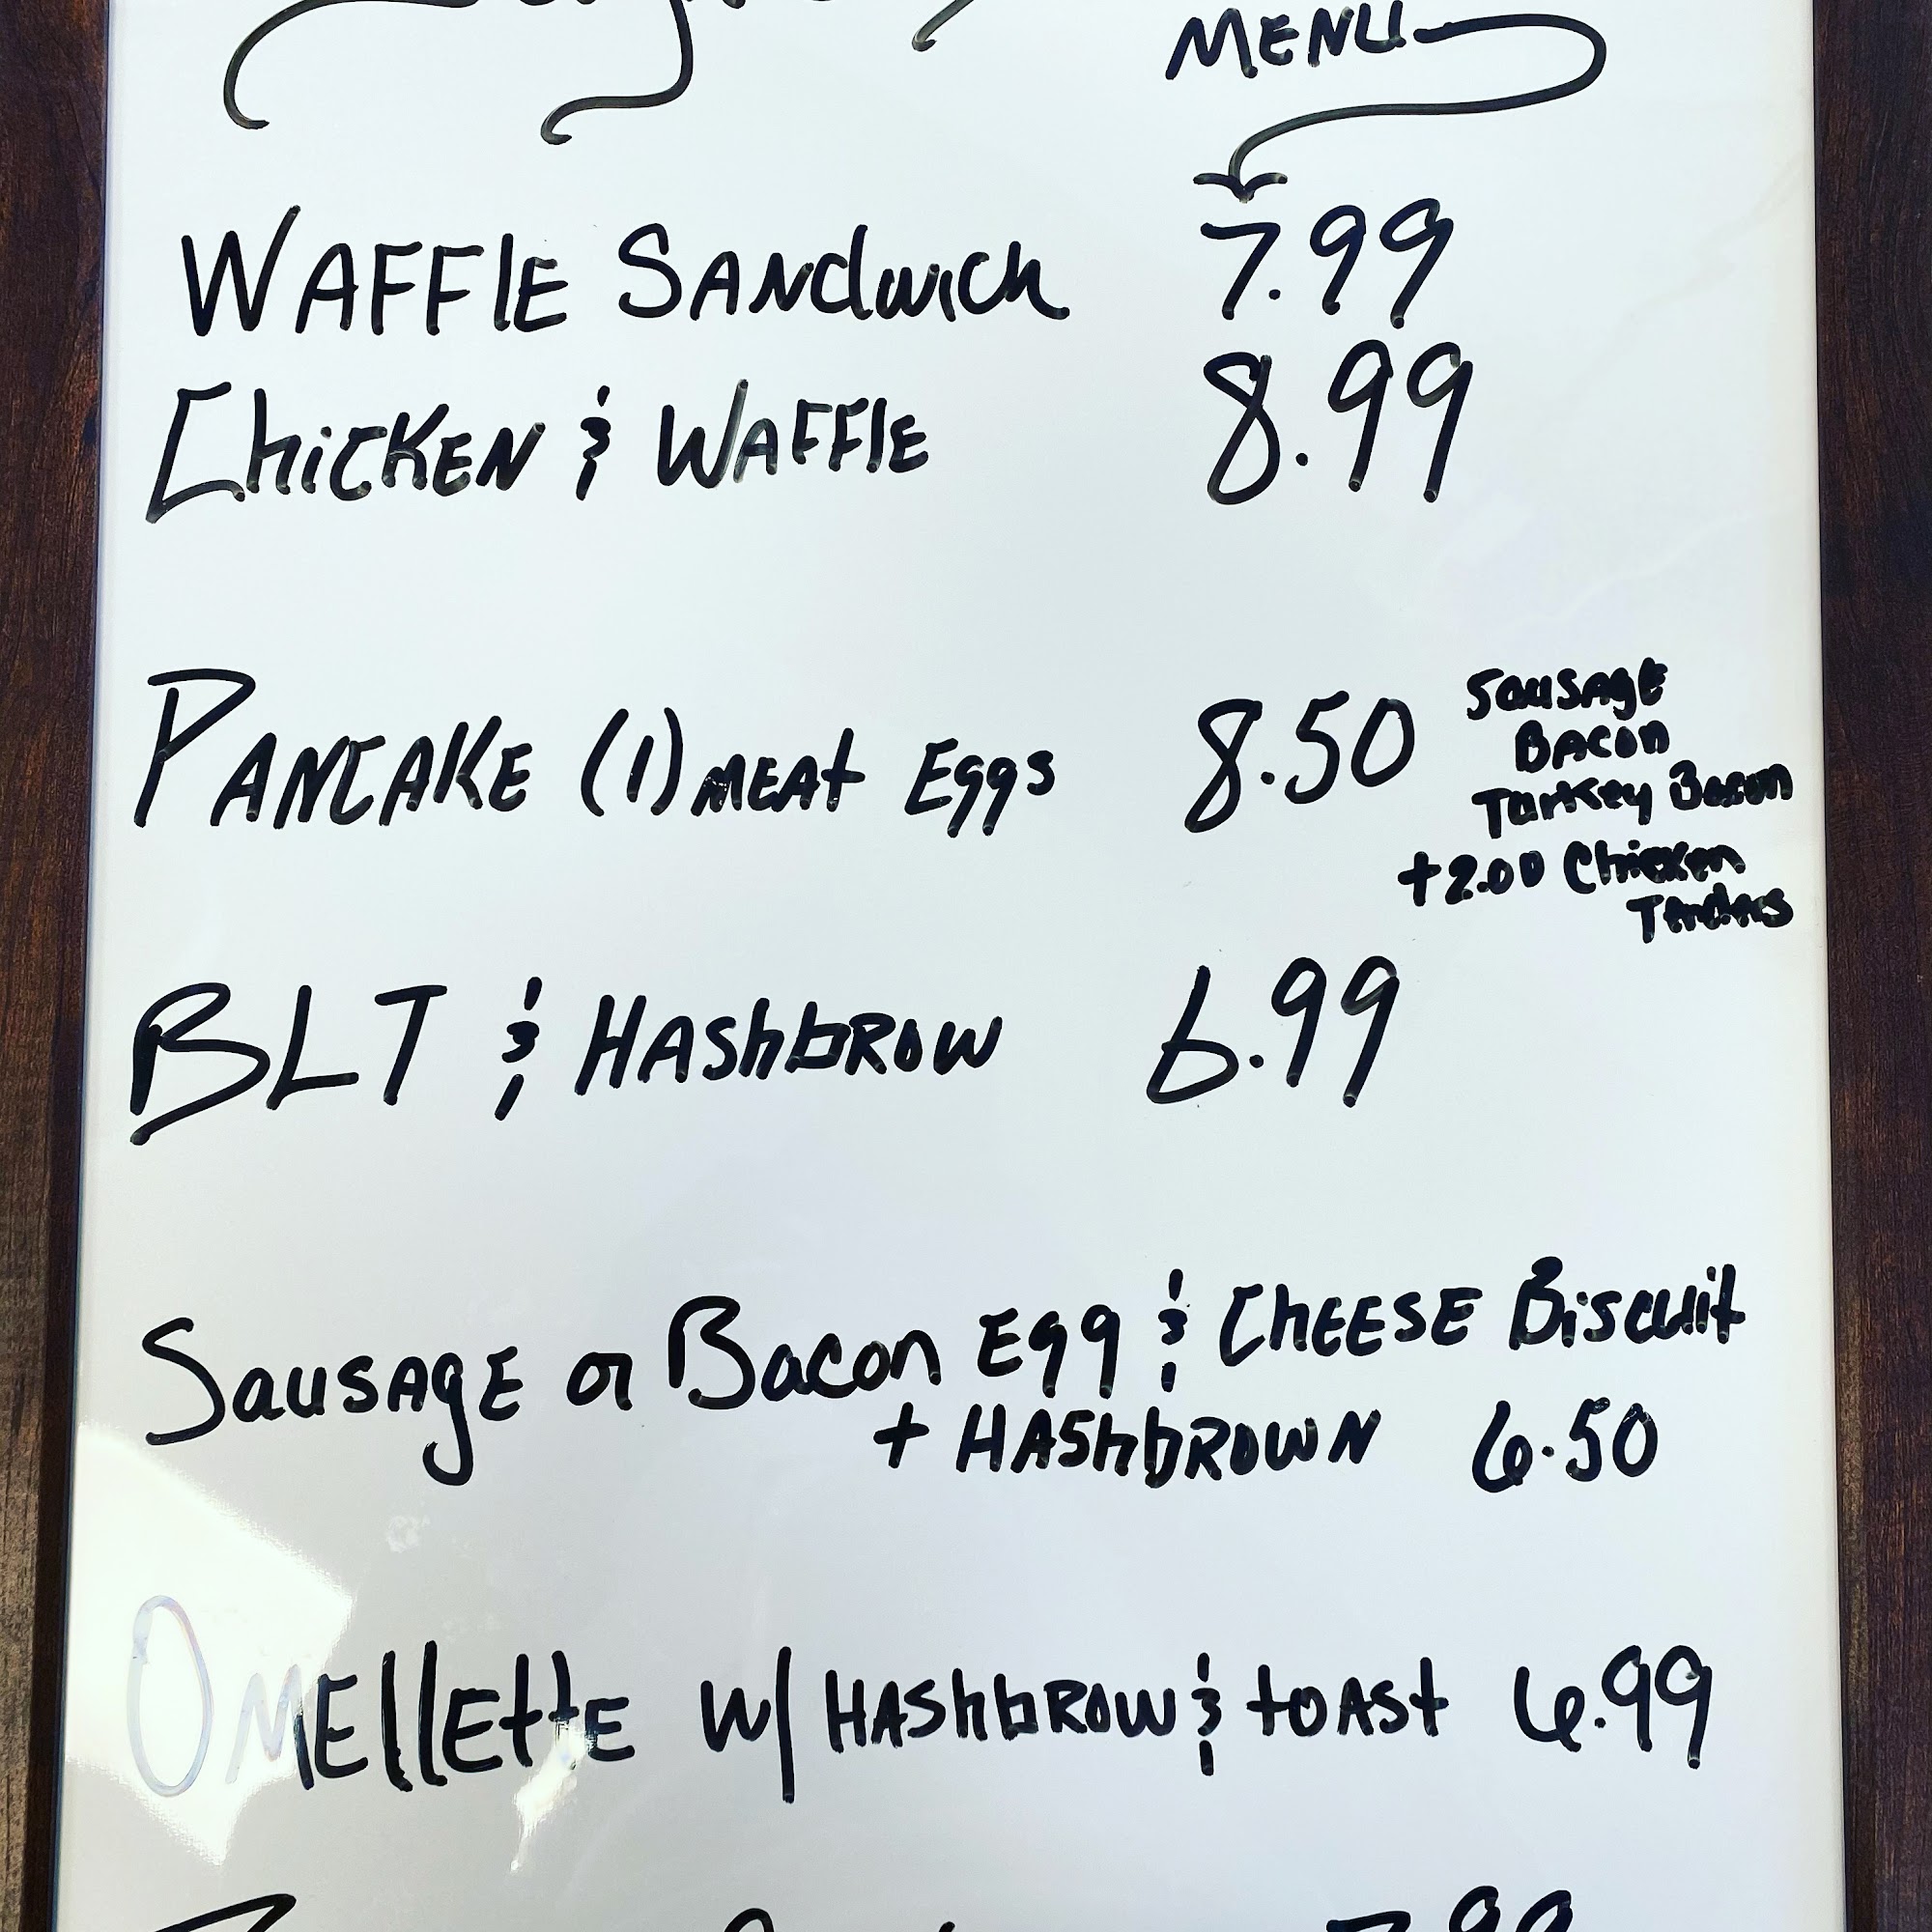 MENU
WAFFlE SANdwich 7.99
ChicKEN & WAFFlE 8.99
PANCAKE (1) MEAt Eggs 8.50 SausAge
BAcon
TurKey Bacon
+2.00 Chicken
Tenders
BLT & HAShbROW 6.99
SausAgE or Bacon Egg & ChEESE Biscuit
+ HAShbROWN 6.50
OMEllEttE w/ HAShbROW & tOASt 6.99